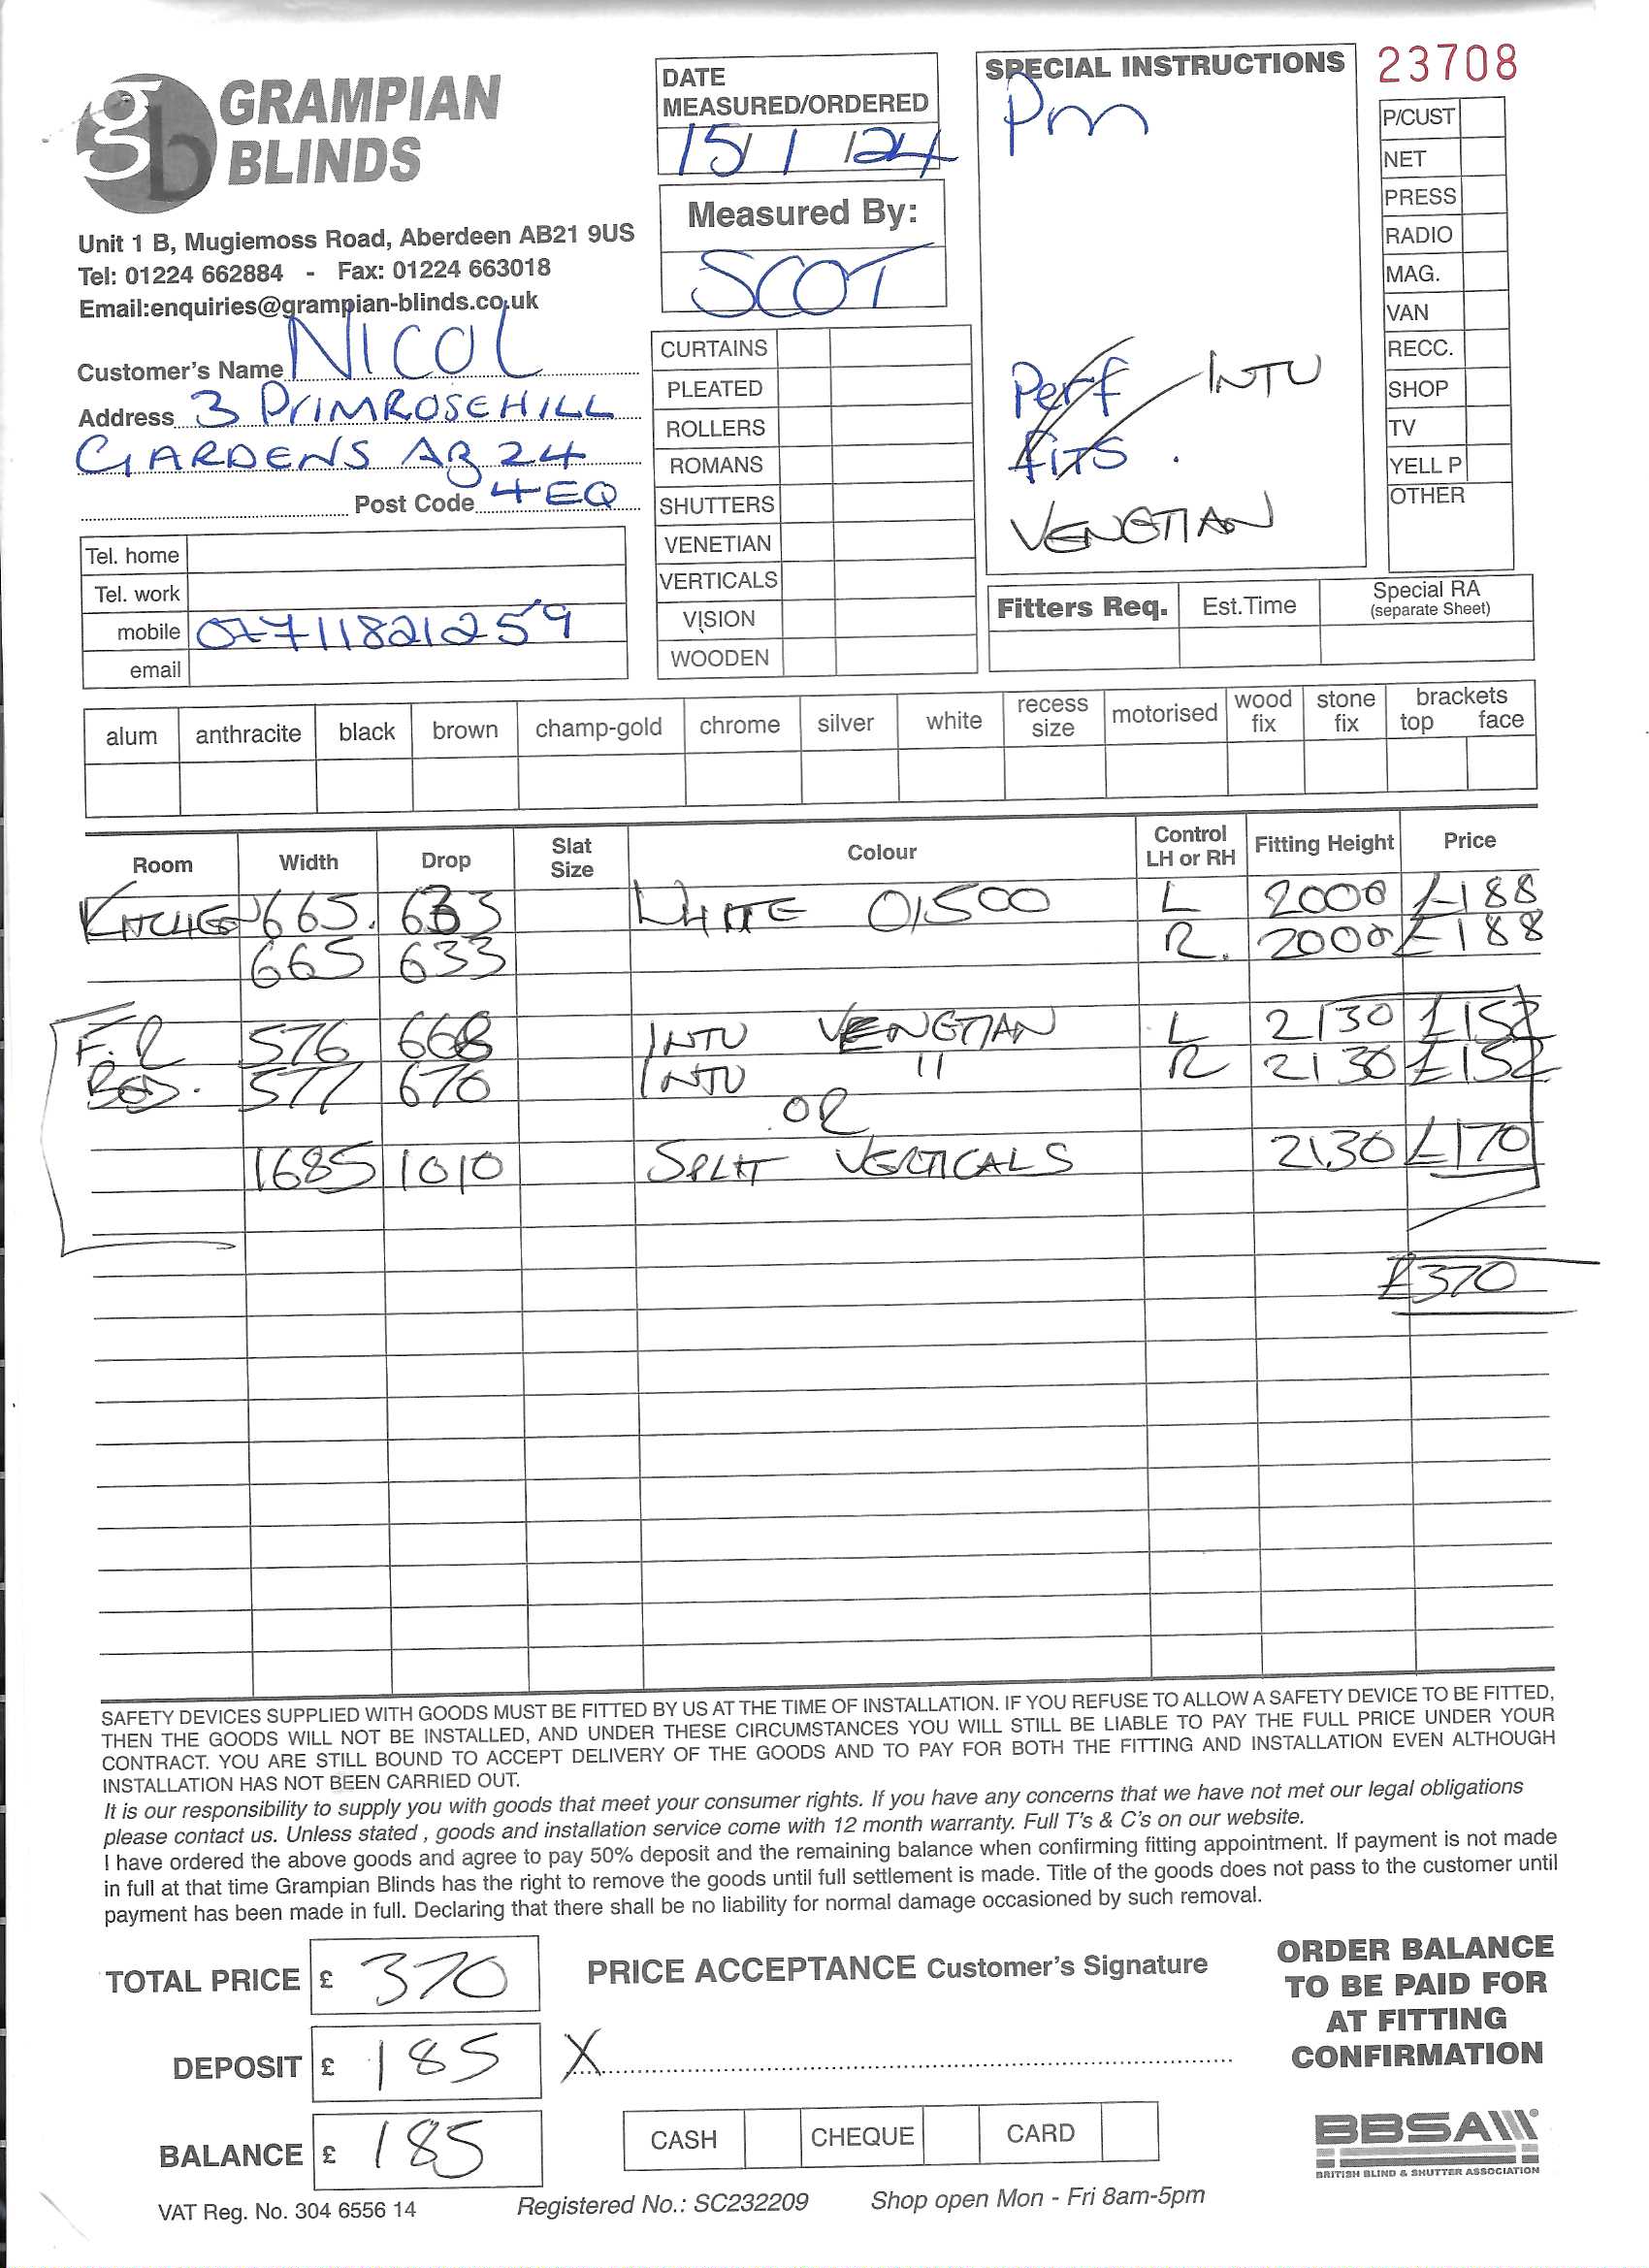 GRAMPIAN
BLINDS
Unit 1 B, Mugiemoss Road, Aberdeen AB21 9US
Tel: 01224 662884 - Fax: 01224 663018
Email:enquiries@grampian-blinds.co.uk
Customer's Name NICOL
Address 3 PRIMROSEHILL
GARDENS AB24
Post Code 4EQ
Tel. home
Tel. work
mobile 07711821259
email
DATE
MEASURED/ORDERED
15/1/24
Measured By:
SCOT
CURTAINS
PLEATED
ROLLERS
ROMANS
SHUTTERS
VENETIAN
VERTICALS
VISION
WOODEN
SPECIAL INSTRUCTIONS
Pm
Perf INTU
fits.
VENETIAN
23708
P/CUST
NET
PRESS
RADIO
MAG.
VAN
RECC.
SHOP
TV
YELL P
OTHER
Fitters Req. Est.Time Special RA
(separate Sheet)
alum anthracite black brown champ-gold chrome silver white recess size motorised wood fix stone fix brackets top face
Room Width Drop Slat Size Colour Control LH or RH Fitting Height Price
KITCHEN 665. 633 WHITE 01500 L 2000 £188
665 633 R. 2000 £188
F.R 576 668 INTU VENETIAN L 2130 £152
BED. 577 670 INTU " R 2130 £152
OR
1685 1010 SPLIT VERTICALS 2130 £170
£370
SAFETY DEVICES SUPPLIED WITH GOODS MUST BE FITTED BY US AT THE TIME OF INSTALLATION. IF YOU REFUSE TO ALLOW A SAFETY DEVICE TO BE FITTED,
THEN THE GOODS WILL NOT BE INSTALLED, AND UNDER THESE CIRCUMSTANCES YOU WILL STILL BE LIABLE TO PAY THE FULL PRICE UNDER YOUR
CONTRACT. YOU ARE STILL BOUND TO ACCEPT DELIVERY OF THE GOODS AND TO PAY FOR BOTH THE FITTING AND INSTALLATION EVEN ALTHOUGH
INSTALLATION HAS NOT BEEN CARRIED OUT.
It is our responsibility to supply you with goods that meet your consumer rights. If you have any concerns that we have not met our legal obligations
please contact us. Unless stated , goods and installation service come with 12 month warranty. Full T's & C's on our website.
I have ordered the above goods and agree to pay 50% deposit and the remaining balance when confirming fitting appointment. If payment is not made
in full at that time Grampian Blinds has the right to remove the goods until full settlement is made. Title of the goods does not pass to the customer until
payment has been made in full. Declaring that there shall be no liability for normal damage occasioned by such removal.
TOTAL PRICE £ 370
DEPOSIT £ 185
BALANCE £ 185
PRICE ACCEPTANCE Customer's Signature
X
CASH CHEQUE CARD
ORDER BALANCE
TO BE PAID FOR
AT FITTING
CONFIRMATION
BBSA
BRITISH BLIND & SHUTTER ASSOCIATION
VAT Reg. No. 304 6556 14 Registered No.: SC232209 Shop open Mon - Fri 8am-5pm